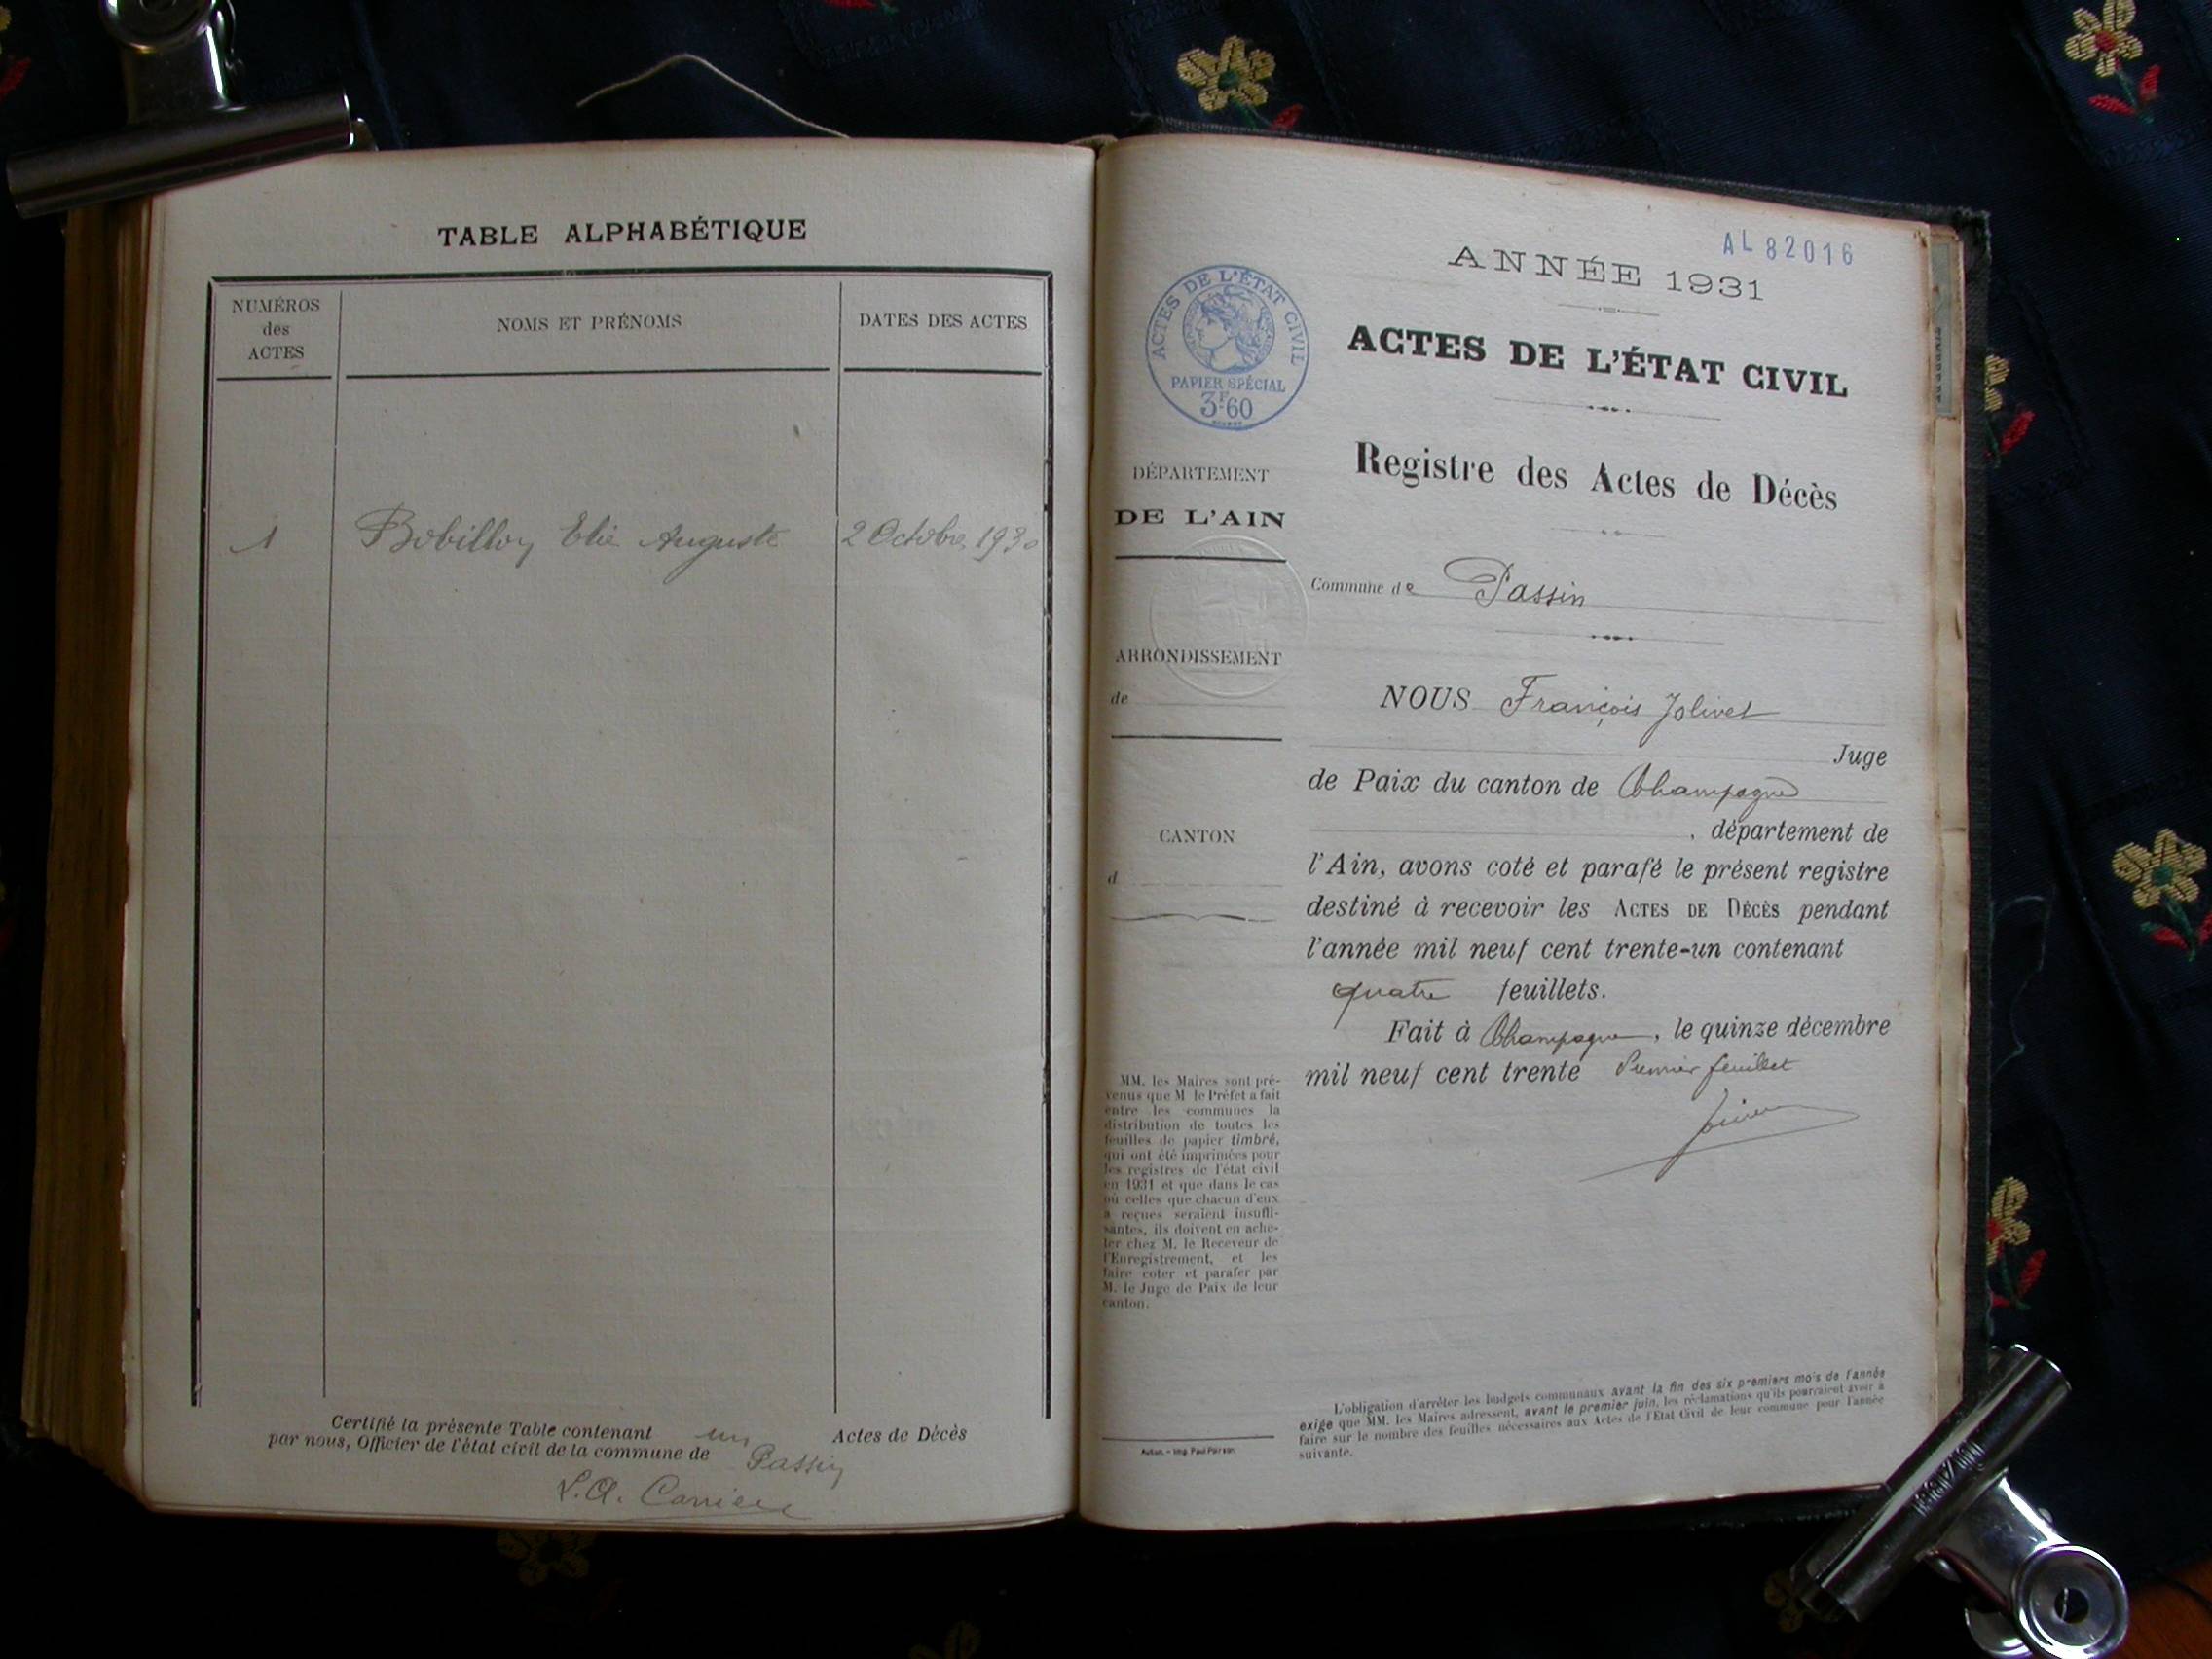 TABLE ALPHABÉTIQUE
NUMÉROS
des
ACTES
NOMS ET PRÉNOMS
DATES DES ACTES
1 Bobillon Elie Auguste 2 Octobre 1930
Certifié la présente Table contenant un Actes de Décès
par nous, Officier de l'état civil de la commune de Passin
AL 82016
ANNÉE 1931
ACTES DE L'ÉTAT CIVIL
PAPIER SPÉCIAL
3F60
ACTES DE L'ÉTAT CIVIL
Registre des Actes de Décès
DÉPARTEMENT
DE L'AIN
Commune de Passin
ARRONDISSEMENT
de
NOUS François Jolivet
Juge
de Paix du canton de Champagne
, département de
CANTON
d
l'Ain, avons coté et parafé le présent registre
destiné à recevoir les ACTES DE DÉCÈS pendant
l'année mil neuf cent trente-un contenant
quatre feuillets.
Fait à Champagne, le quinze décembre
mil neuf cent trente Premier feuillet
MM. les Maires sont pré-
venus que M le Préfet a fait
entre les communes la
distribution de toutes les
feuilles de papier timbré,
qui ont été imprimées pour
les registres de l'état civil
en 1931 et que dans le cas
où celles que chacun d'eux
a reçues seraient insuffi-
santes, ils doivent en ache-
ter chez M. le Receveur de
l'Enregistrement, et les
faire coter et parafer par
M. le Juge de Paix de leur
canton.
L'obligation d'arrêter les budgets communaux avant la fin des six premiers mois de l'année
exige que MM. les Maires adressent, avant le premier juin, les réclamations qu'ils pourraient avoir à
faire sur le nombre des feuilles nécessaires aux Actes de l'Etat Civil de leur commune pour l'année
suivante.